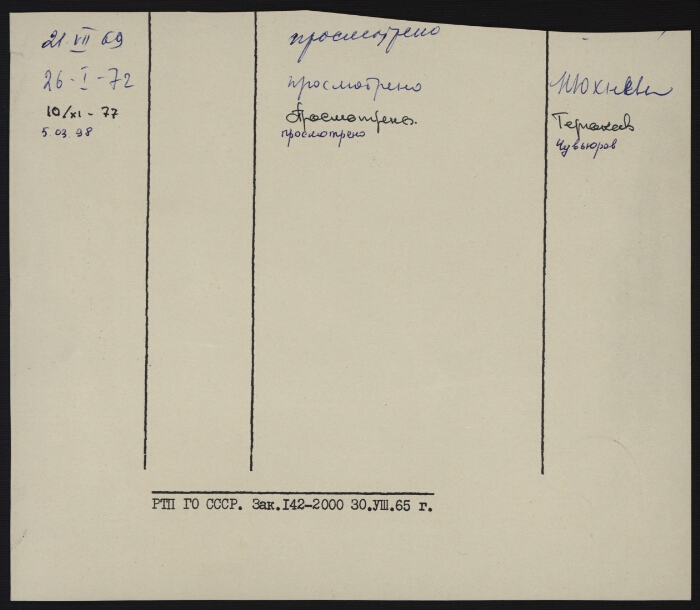 21 VII 69 просмотрено
26-I-72 просмотрено Юхневич
10/XI-77 Просмотрено.
5.03.98 просмотрено Чувьюров
РТП ГО СССР. Зак.I42-2000 30.УШ.65 г.